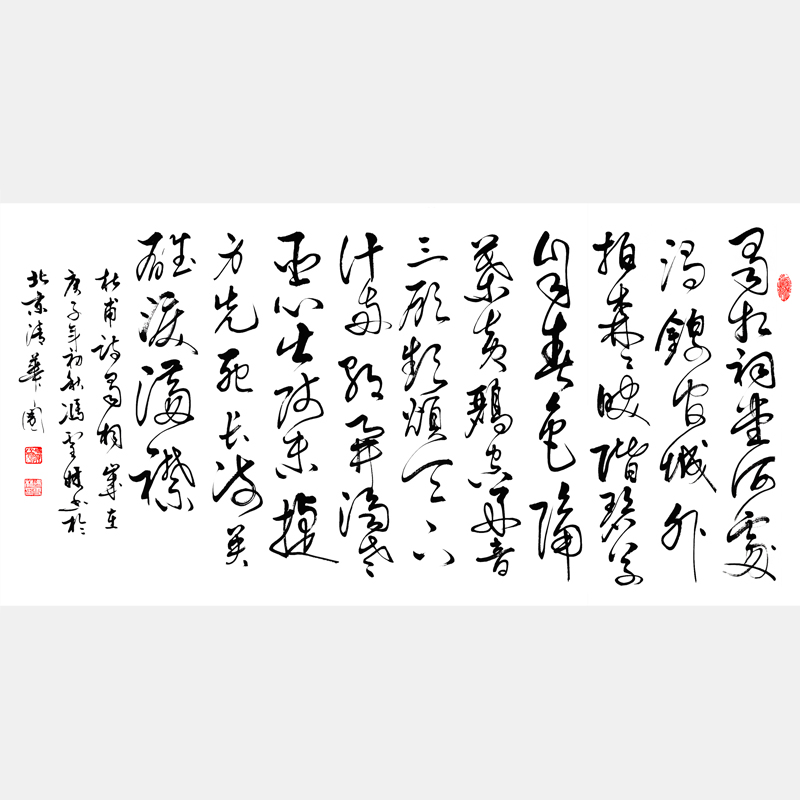 蜀相祠堂何處
尋錦官城外
柏森〻映階碧草
自春色隔
葉黄鸝空好音
三顧頻煩天下
計兩朝開濟老
臣心出師未捷
身先死長使英
雄淚滿襟
杜甫詩蜀相歲在
庚子年初秋馮雪書於
北京清華園